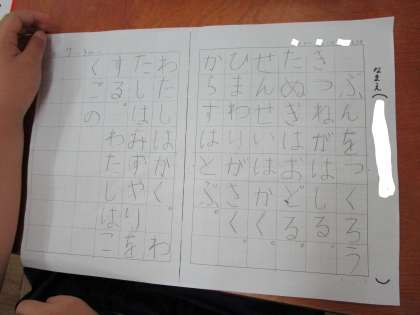 なまえ（　）
ぶんをつくろう
きつねがはしる。
たぬきはおどる。
せんせいはかく。
ひまわりがさく。
からすはとぶ。
わたしはかく。わ
たしはみずやりを
する。わたしはこ
くごの